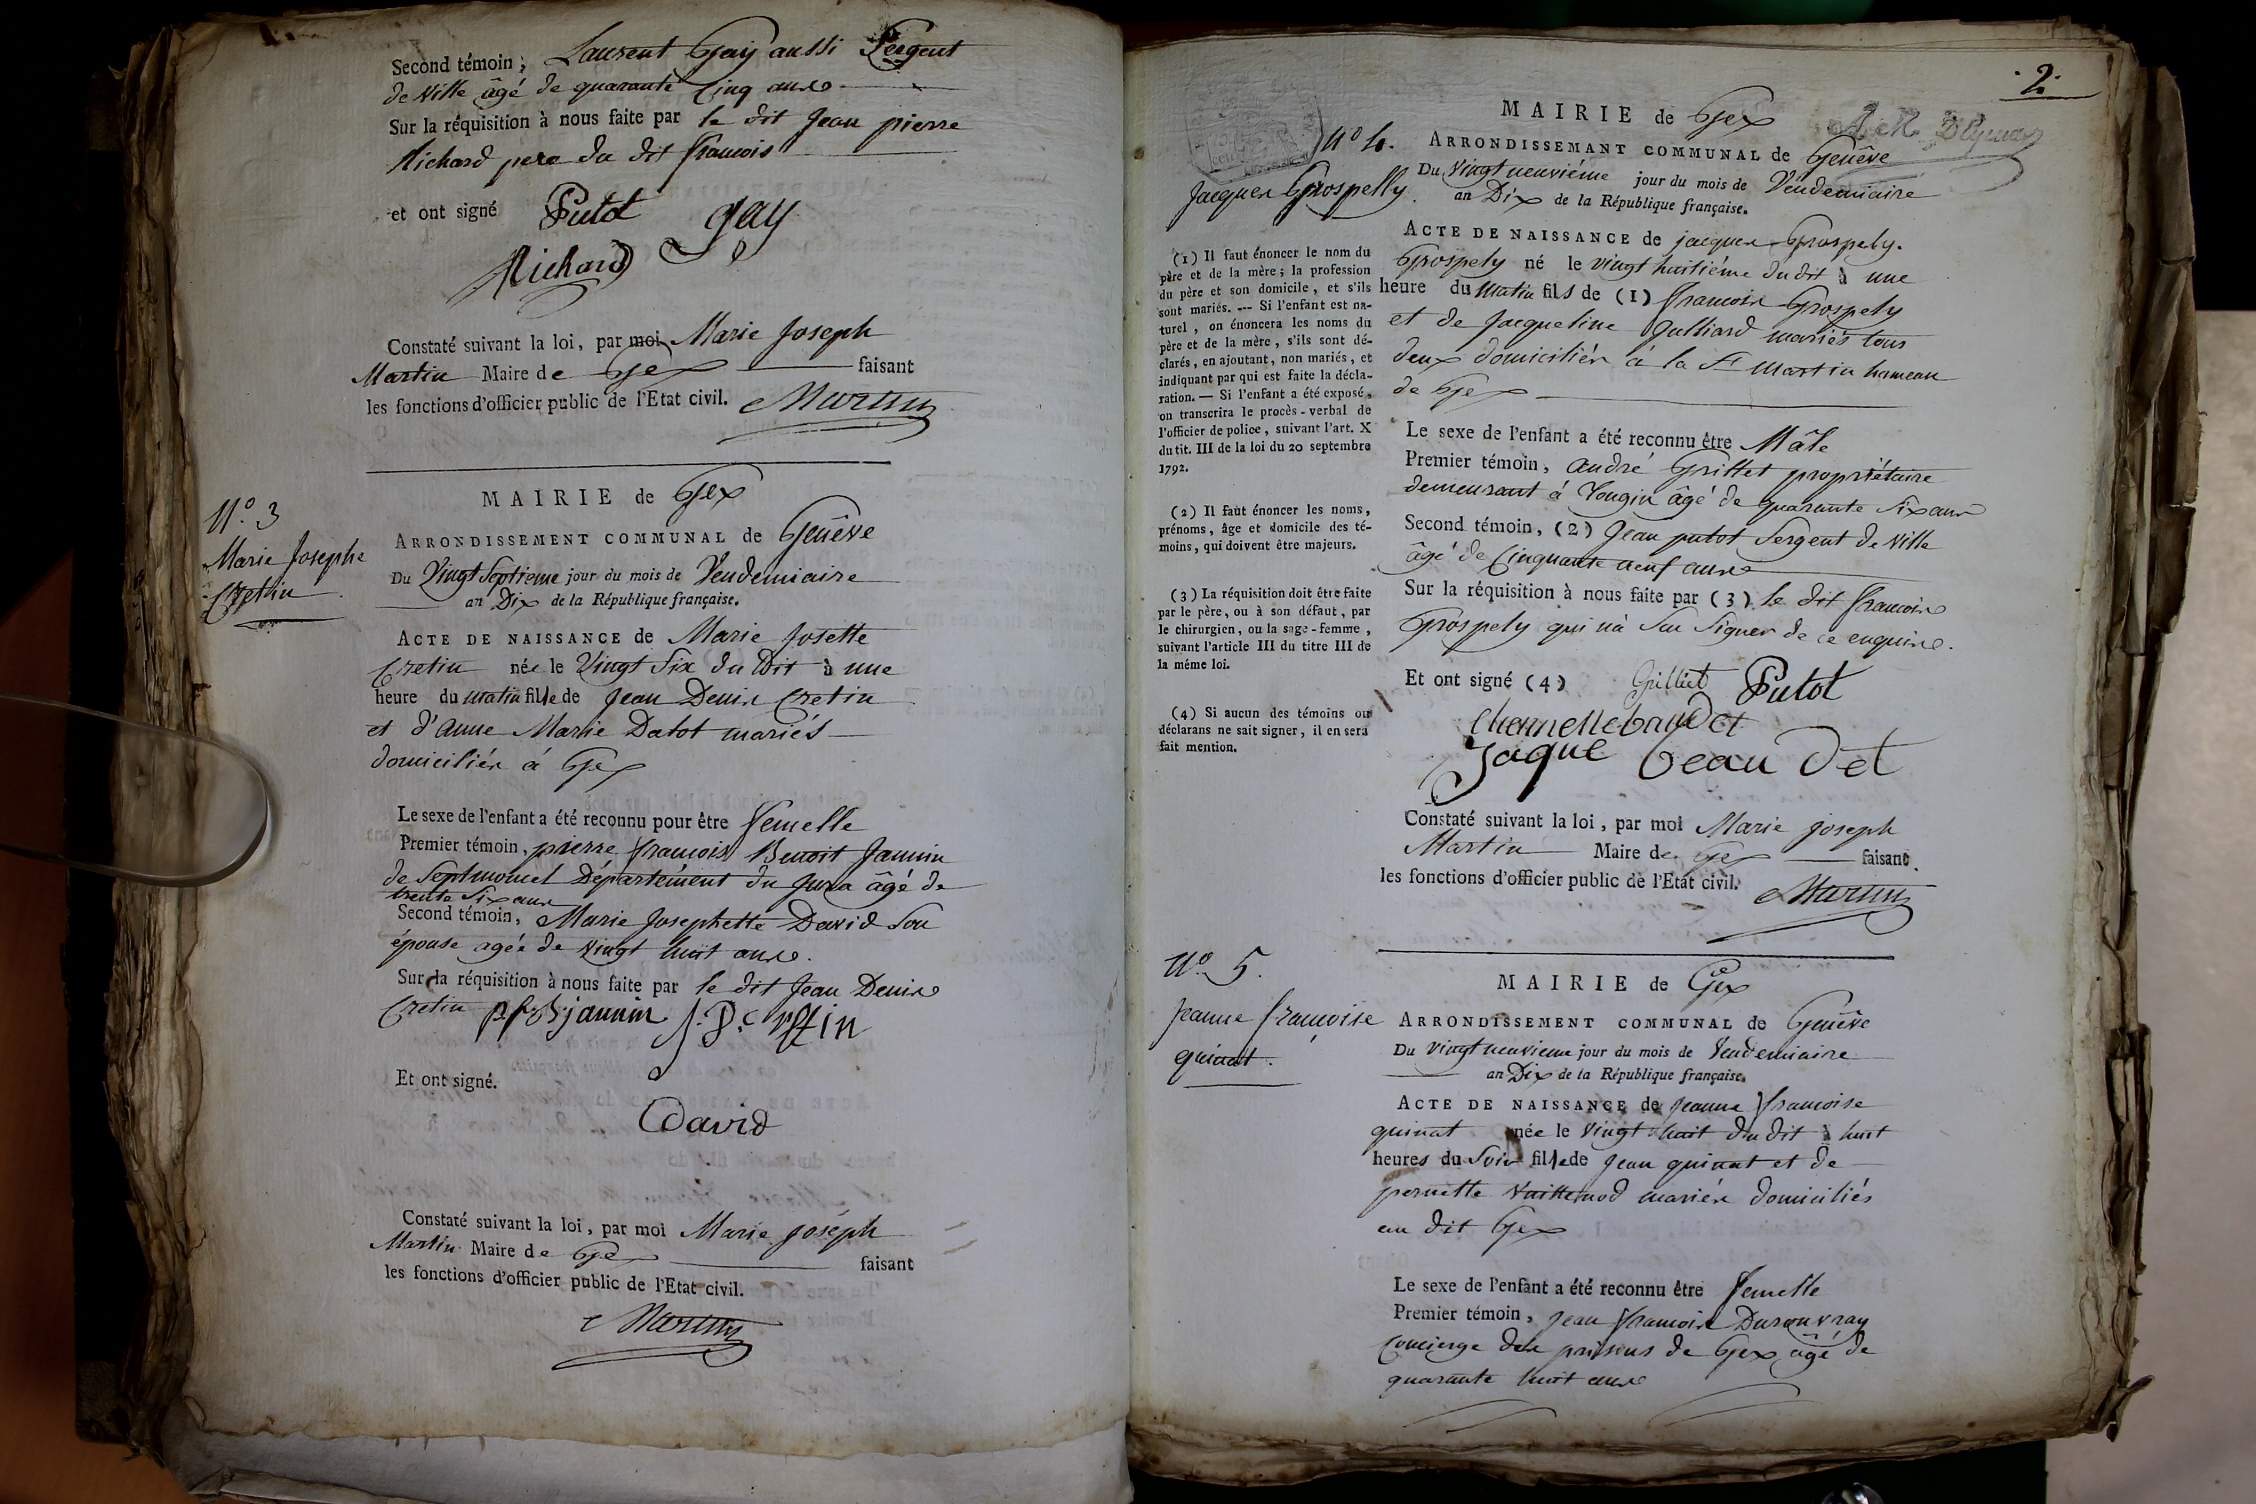 Second témoin, Laurent Gay aussi Sergent
de Ville âgé de quarante Cinq ans
Sur la réquisition à nous faite par le dit Jean pierre
Richard pere du dit francois
et ont signé Putot gay
Richard
Constaté suivant la loi, par moi Marie Joseph
Martin Maire de Gex faisant
les fonctions d'officier public de l'Etat civil. Martin
N.° 3
Marie Josephe
Cretin
MAIRIE de Gex
ARRONDISSEMENT COMMUNAL de Genêve
Du Vingt Septieme jour du mois de Vendemiaire
an Dix de la République française.
ACTE DE NAISSANCE de Marie Josette
Cretin née le Vingt Six du Dit à une
heure du matin fille de Jean Denis Cretin
et d'anne Marie Datot mariés
domiciliés à Gex
Le sexe de l'enfant a été reconnu pour être femelle
Premier témoin, pierre francois Benoit Jannin
de Septmoncel Département du Jura âgé de
trente Six ans
Second témoin, Marie Josephette David Son
épouse agée de vingt huit ans.
Sur la réquisition à nous faite par le dit Jean Denis
Cretin p.f.B. jannin J. D. Crétin
Et ont signé.
David
Constaté suivant la loi, par moi Marie Joséph
Martin Maire de Gex faisant
les fonctions d'officier public de l'Etat civil.
Martin
.2.
N° 4.
Jacques Grospelly
MAIRIE de Gex
ARRONDISSEMANT COMMUNAL de Genêve
Du Vingt neuviéme jour du mois de Vendemiaire
an Dix de la République française.
ACTE DE NAISSANCE de jacques Grospely.
Grospely né le vingt huitiéme du dit à une
heure du matin fils de (1) francois Grospely
et de Jacqueline Julliard mariés tous
deux domiciliés à la St Martin hameau
de Gex
(1) Il faut énoncer le nom du
père et de la mère; la profession
du père et son domicile, et s'ils
sont mariés. --- Si l'enfant est na-
turel, on énoncera les noms du
père et de la mère, s'ils sont dé-
clarés, en ajoutant, non mariés, et
indiquant par qui est faite la décla-
ration. — Si l'enfant a été exposé,
on transcrira le procès-verbal de
l'officier de police, suivant l'art. X
du tit. III de la loi du 20 septembre
1792.
Le sexe de l'enfant a été reconnu être Mâle
Premier témoin, andré Grillet propriétaire
demeurant à Tougin âgé de quarante Six ans
Second témoin, (2) Jean putot Sergent de Ville
âgé de Cinquante neuf ans
(2) Il faut énoncer les noms,
prénoms, âge et domicile des té-
moins, qui doivent être majeurs.
Sur la réquisition à nous faite par (3) le dit francois
Grospely qui n'a Su Signer de ce enquis.
(3) La réquisition doit être faite
par le père, ou à son défaut, par
le chirurgien, ou la sage-femme,
suivant l'article III du titre III de
la même loi.
Et ont signé (4) Grilliet Putot
Jaque Beaudet
(4) Si aucun des témoins ou
déclarans ne sait signer, il en sera
fait mention.
Constaté suivant la loi, par moi Marie joseph
Martin Maire de Gex faisant
les fonctions d'officier public de l'Etat civil. Martin
N° 5.
Jeanne françoise
quinat.
MAIRIE de Gex
ARRONDISSEMENT COMMUNAL de Genêve
Du vingt neuvieme jour du mois de Vendemiaire
an Dix de la République française.
ACTE DE NAISSANCE de Jeanne francoise
quinat née le vingt huit du dit à huit
heures du Soir fille de Jean quinat et de
pernette Vuittemod mariés domiciliés
au dit Gex
Le sexe de l'enfant a été reconnu être femelle
Premier témoin, Jean francois Durouvray
Concierge des prisons de Gex âgé de
quarante huit ans